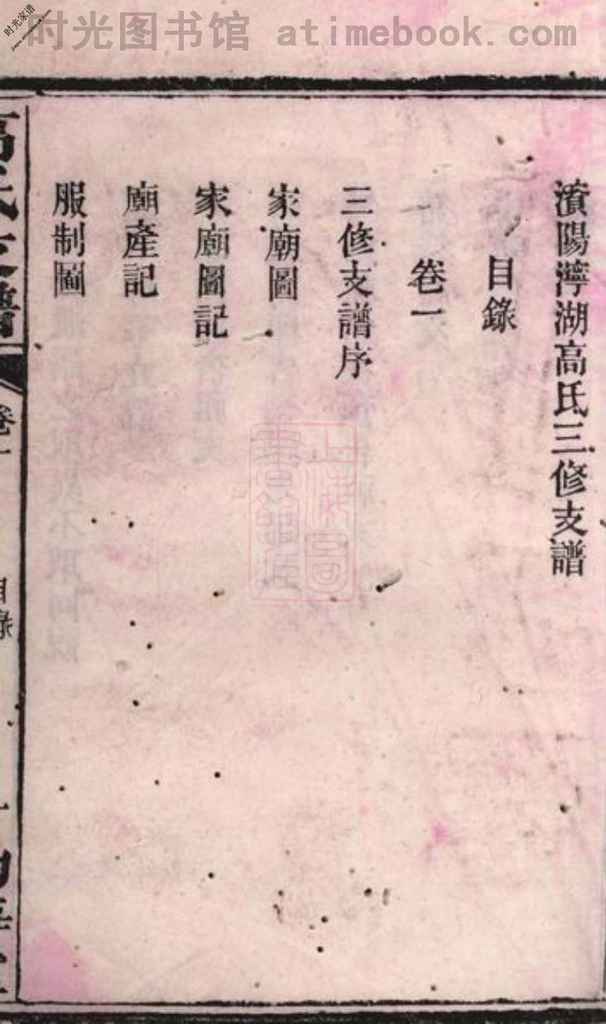 时光图书馆 atimebook.com
时光家谱
濱陽濘湖高氏三修支譜
目錄
卷一
三修支譜序
家廟圖
家廟圖記
廟產記
服制圖
高氏支譜
卷一
目錄
一